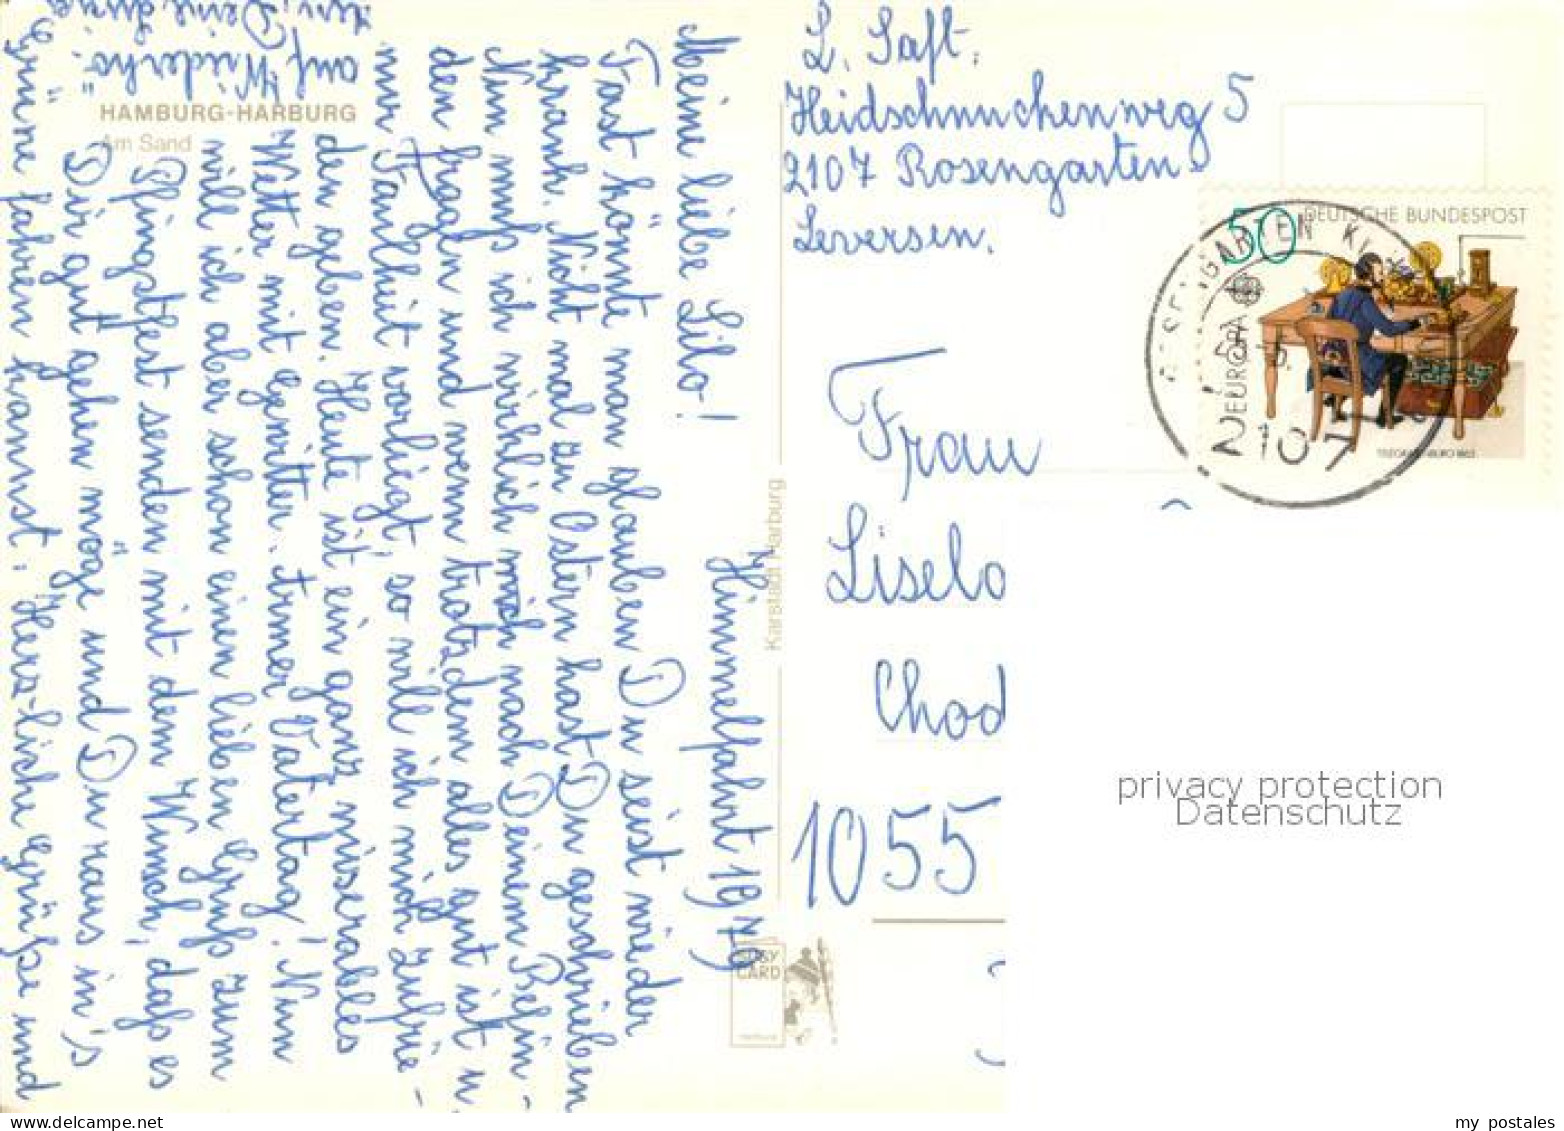 HAMBURG-HARBURG
Am Sand
Himmelfahrt 1979
Meine liebe Lilo!
Fast könnte man glauben Du seist wieder
krank. Nicht mal zu Ostern hast Du geschrieben
Nun muß ich wirklich mich nach Deinem Befin-
den fragen und wenn trotzdem alles gut ist u.
nur Faulheit vorliegt, so will ich mich zufrie-
den geben. Heute ist ein ganz miserables
Wetter mit Gewitter. Armer Vatertag! Nun
will ich aber schon einen lieben Gruß zum
Pfingstfest senden mit dem Wunsch, daß es
Dir gut gehen möge und Du raus in's
Grüne fahren kannst. Herz-liche Grüße und
auf Wiederhö.
Deine
Karstadt Harburg
CARD
L. Saft.
Heidschnuckenweg 5
2107 Rosengarten
Leversen.
DEUTSCHE BUNDESPOST
50
EUROPA
2107
Frau
Liselo
Chod
1055
privacy protection
Datenschutz
my postales